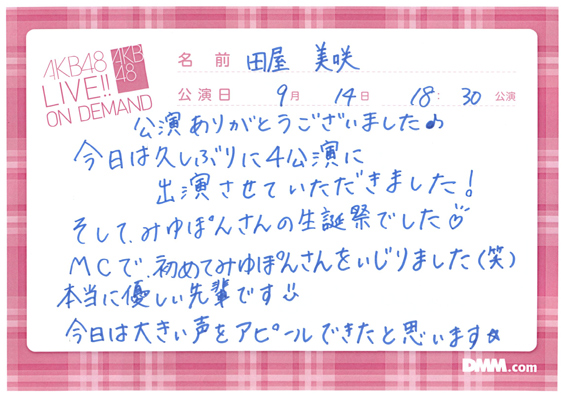 AKB48
LIVE!!
ON DEMAND
AKB
48
名前 田屋 美咲
公演日 9月 14日 18:30 公演
公演ありがとうございました♪
今日は久しぶりに4公演に
出演させていただきました!
そして、みゆぽんさんの生誕祭でした
MCで、初めてみゆぽんさんをいじりました(笑)
本当に優しい先輩です
今日は大きい声をアピールできたと思います☆
DMM.com